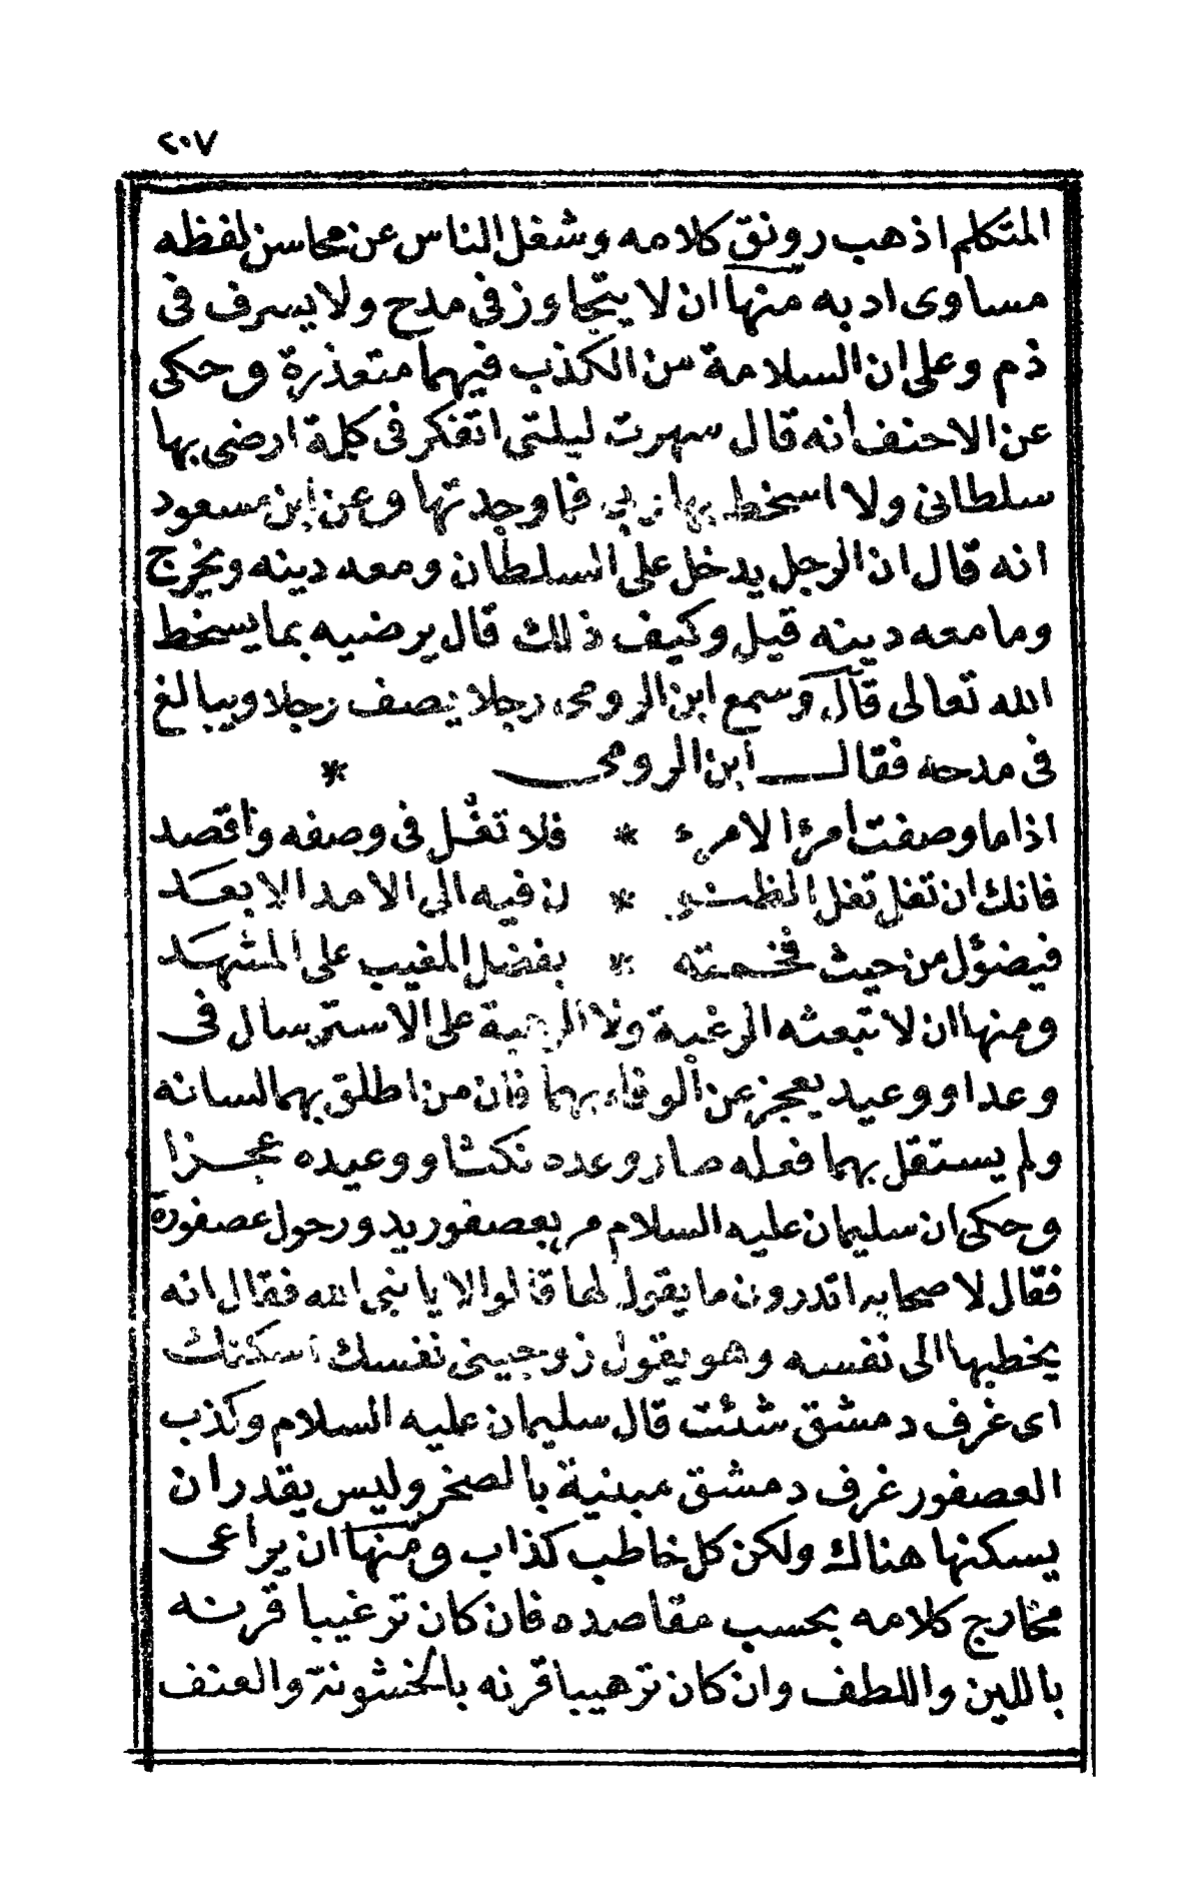 ٢٠٧
المتكلم اذهب رونق كلامه وشغل الناس عن محاسن لفظه
مساوى ادبه منها ان لا يتجاوز فى مدح ولا يسرف فى
ذم وعلى ان السلامة من الكذب فيهما متعذرة وحكى
عن الاحنف انه قال سهرت ليلتى اتفكر فى كلمة ارضى بها
سلطانى ولا اسخط بها ربى فما وجدتها وعن ابن مسعود
انه قال ان الرجل يدخل على السلطان ومعه دينه ويخرج
وما معه دينه قيل وكيف ذلك قال يرضيه بما يسخط
الله تعالى قال وسمع ابن الرومى رجلا يصف رجلا ويبالغ
فى مدحه فقال ابن الرومى *
اذا ما وصفت امرءا لامرء * فلا تغل فى وصفه واقصد
فانك ان تغل تغل الظنو * ن فيه الى الامد الابعد
فيضؤل من حيث فخمته * بفضل المغيب على المشهد
ومنها ان لا تبعثه الرغبة ولا الرهبة على الاسترسال فى
وعد او وعيد يعجز عن الوفاء بهما فان من اطلق بهما لسانه
ولم يستقل بهما فعله صار وعده نكثا ووعيده عجزا
وحكى ان سليمان عليه السلام مر بعصفور يدور حول عصفورة
فقال لاصحابه اتدرون ما يقول لها قالوا لا يا نبى الله فقال انه
يخطبها الى نفسه وهو يقول زوجينى نفسك اسكنك
اى غرف دمشق شئت قال سليمان عليه السلام وكذب
العصفور غرف دمشق مبنية بالصخر وليس يقدر ان
يسكنها هناك ولكن كل خاطب كذاب ومنها ان يراعى
مخارج كلامه بحسب مقاصده فان كان ترغيبا قرنه
باللين واللطف وان كان ترهيبا قرنه بالخشونة والعنف